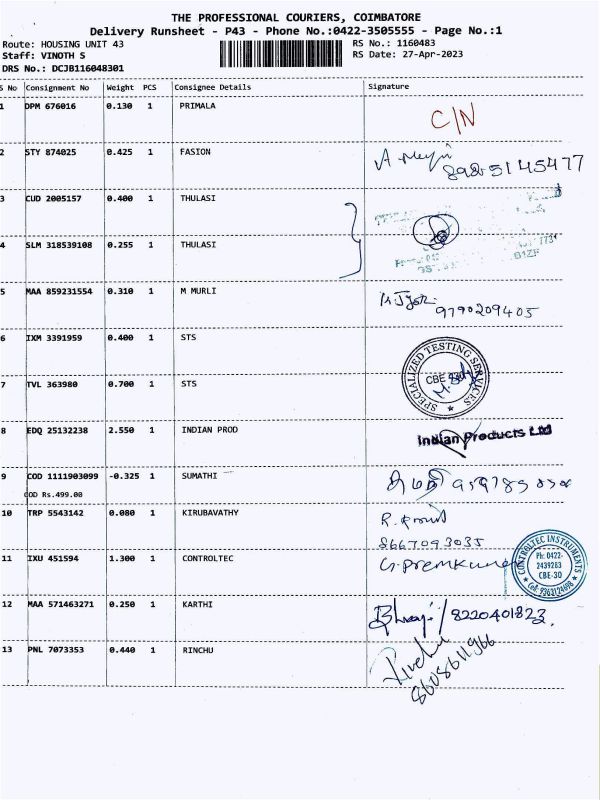 THE PROFESSIONAL COURIERS, COIMBATORE
Delivery Runsheet - P43 - Phone No.:0422-3505555 - Page No.:1
Route: HOUSING UNIT 43 RS No.: 1160483
Staff: VINOTH S RS Date: 27-Apr-2023
DRS No.: DCJB116048301
S No Consignment No Weight PCS Consignee Details Signature
1 DPM 676016 0.130 1 PRIMALA C/N
2 STY 874025 0.425 1 FASION
3 CUD 2005157 0.400 1 THULASI
4 SLM 318539108 0.255 1 THULASI
5 MAA 859231554 0.310 1 M MURLI
9790209405
6 IXM 3391959 0.400 1 STS
SPECIALIZED TESTING SERVICES
CBE
7 TVL 363980 0.700 1 STS
8 EDQ 25132238 2.550 1 INDIAN PROD Indian Products Ltd
9 COD 1111903099 -0.325 1 SUMATHI
COD Rs.499.00
10 TRP 5543142 0.080 1 KIRUBAVATHY
8667093035
11 IXU 451594 1.300 1 CONTROLTEC G. Premkumar
CONTROLTEC INSTRUMENTS
Ph: 0422-
2439283
CBE-30
12 MAA 571463271 0.250 1 KARTHI 8220401823
13 PNL 7073353 0.440 1 RINCHU Rinchu
8608611966